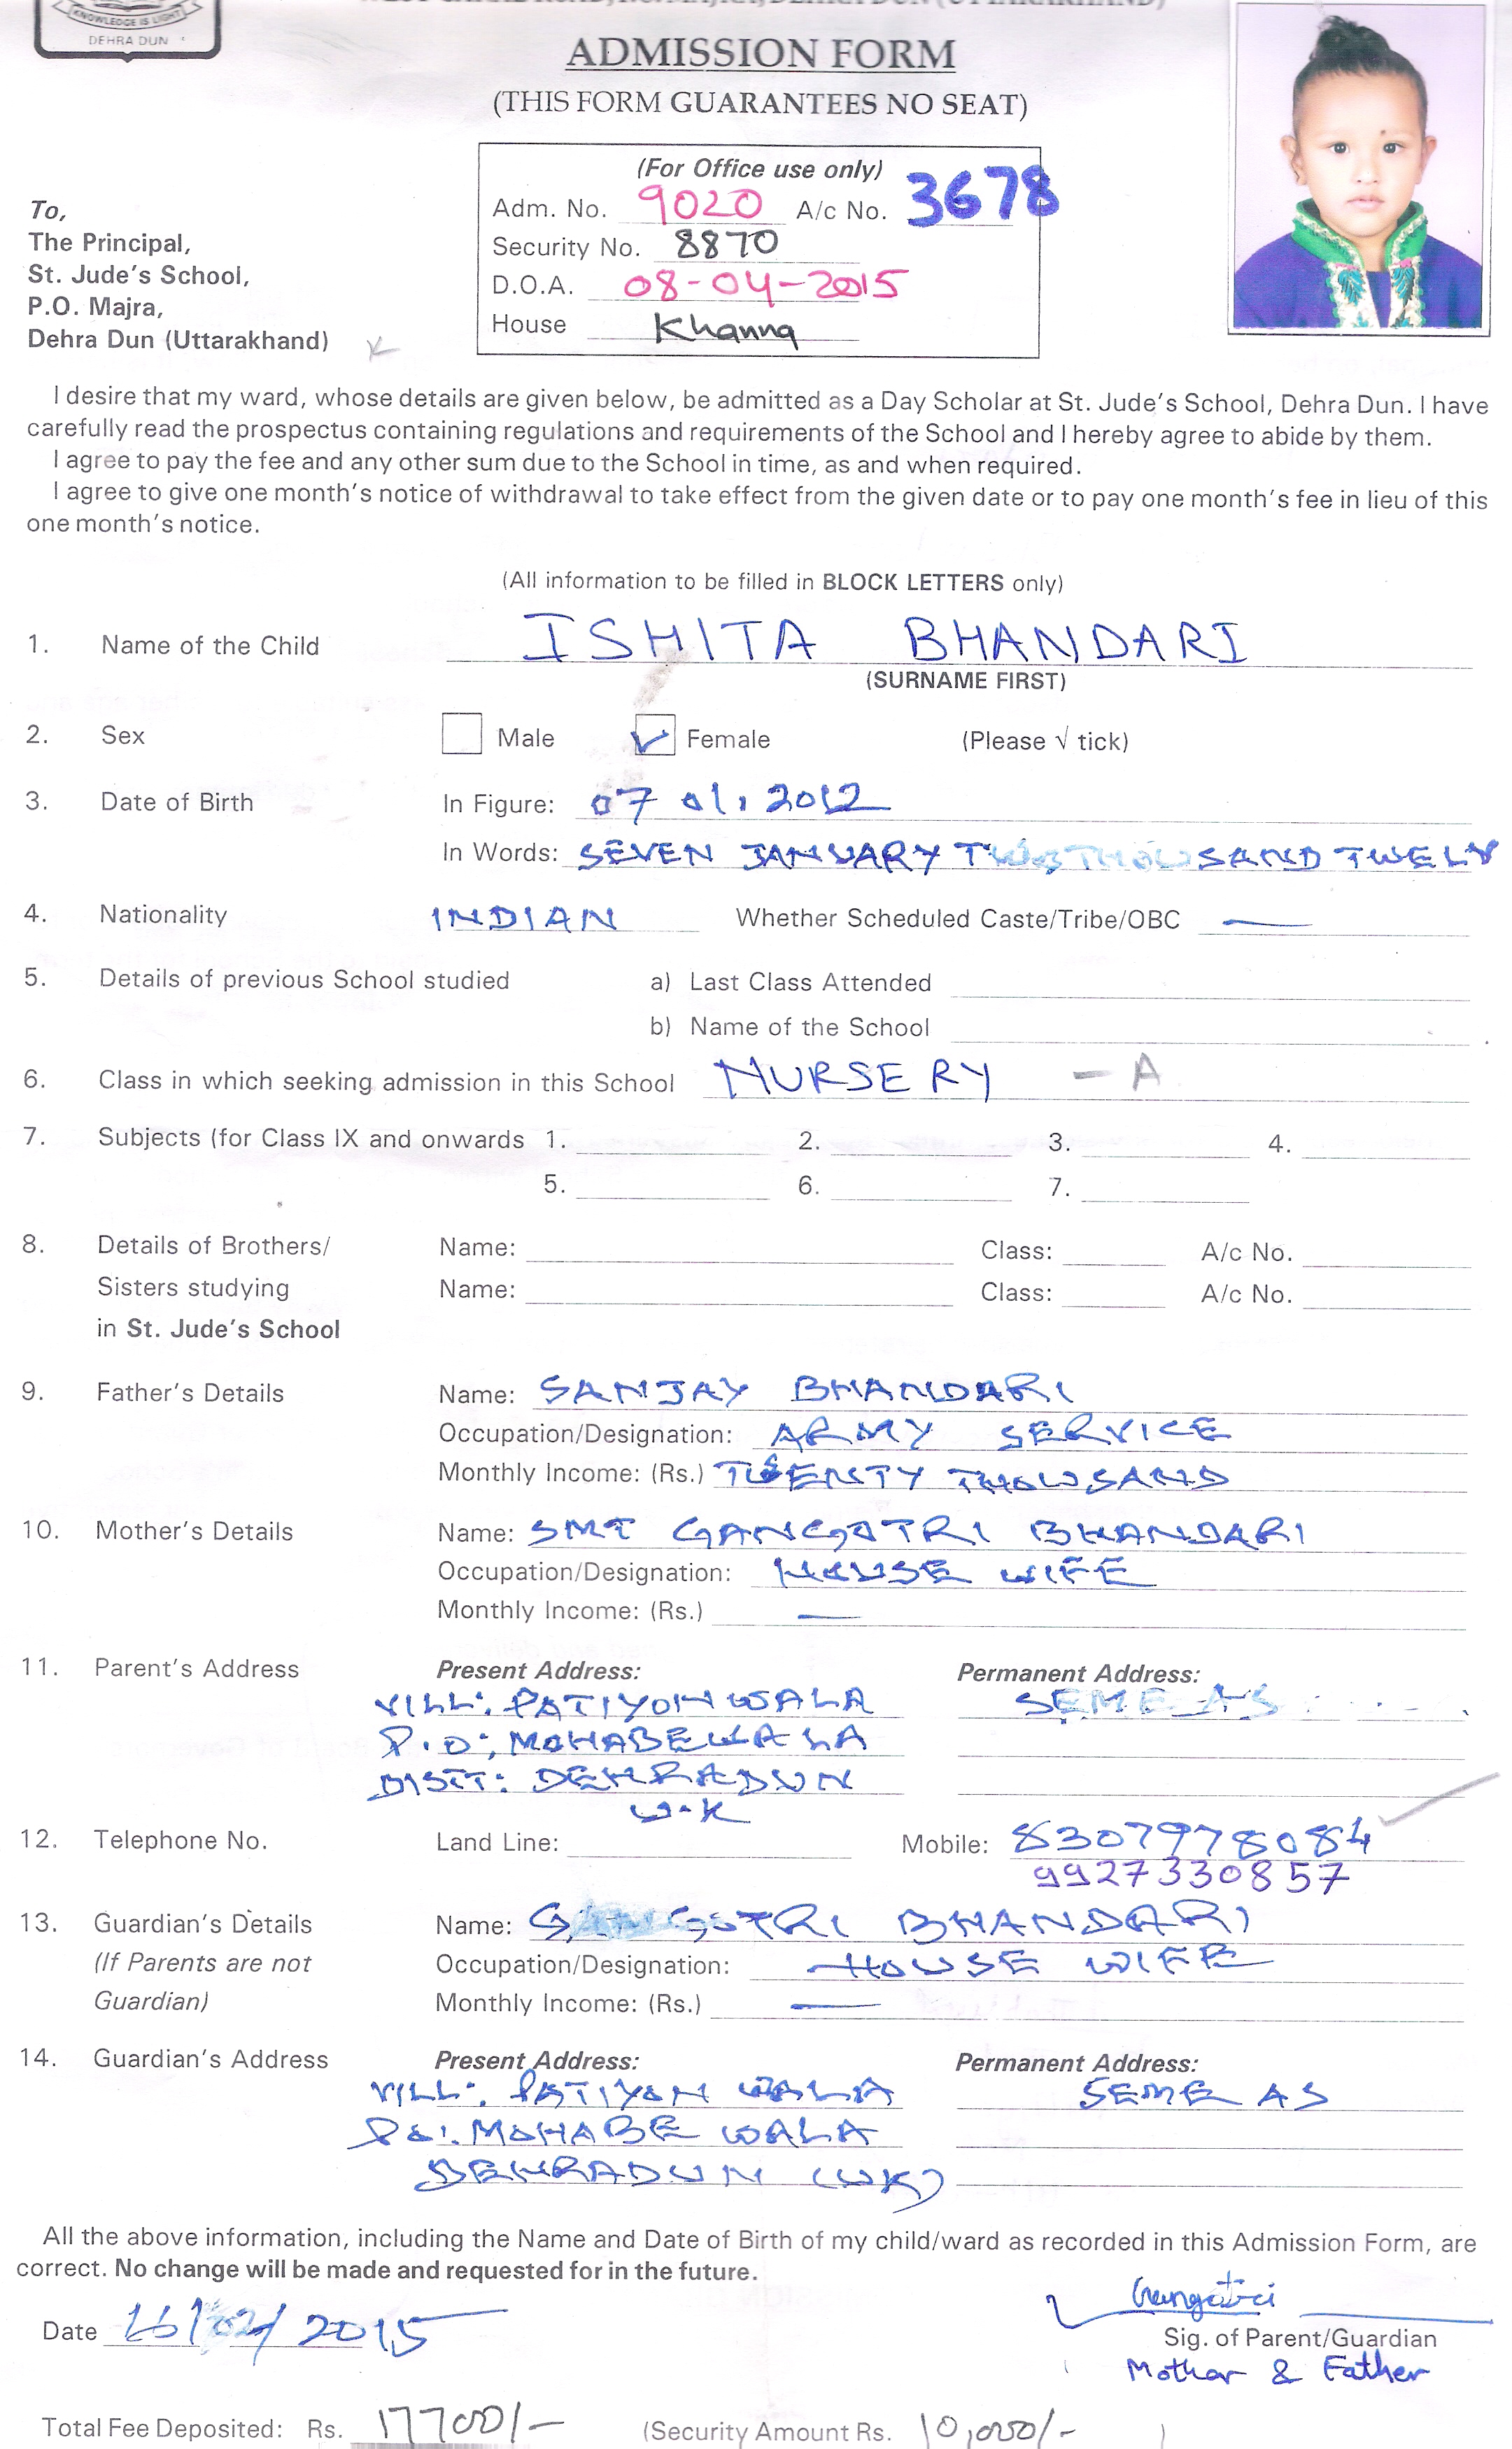 KNOWLEDGE IS LIGHT
DEHRA DUN
ADMISSION FORM
(THIS FORM GUARANTEES NO SEAT)
(For Office use only)
Adm. No. 9020 A/c No. 3678
Security No. 8870
D.O.A. 08-04-2015
House Khanna
To,
The Principal,
St. Jude's School,
P.O. Majra,
Dehra Dun (Uttarakhand)
I desire that my ward, whose details are given below, be admitted as a Day Scholar at St. Jude's School, Dehra Dun. I have
carefully read the prospectus containing regulations and requirements of the School and I hereby agree to abide by them.
I agree to pay the fee and any other sum due to the School in time, as and when required.
I agree to give one month's notice of withdrawal to take effect from the given date or to pay one month's fee in lieu of this
one month's notice.
(All information to be filled in BLOCK LETTERS only)
1. Name of the Child ISHITA BHANDARI
(SURNAME FIRST)
2. Sex Male Female (Please √ tick)
3. Date of Birth In Figure: 07 01, 2012
In Words: SEVEN JANUARY TWO THOUSAND TWELV
4. Nationality INDIAN Whether Scheduled Caste/Tribe/OBC —
5. Details of previous School studied a) Last Class Attended
b) Name of the School
6. Class in which seeking admission in this School NURSERY - A
7. Subjects (for Class IX and onwards 1. 2. 3. 4.
5. 6. 7.
8. Details of Brothers/ Name: Class: A/c No.
Sisters studying Name: Class: A/c No.
in St. Jude's School
9. Father's Details Name: SANJAY BHANDARI
Occupation/Designation: ARMY SERVICE
Monthly Income: (Rs.) TWENTY THOUSAND
10. Mother's Details Name: SMT GANGOTRI BHANDARI
Occupation/Designation: HOUSE WIFE
Monthly Income: (Rs.) —
11. Parent's Address Present Address: Permanent Address:
VILL: PATIYON WALA SEME AS
P.O:, MOHABEWALA
DISTT: DEHRADUN
U.K
12. Telephone No. Land Line: Mobile: 8307978084
9927330857
13. Guardian's Details Name: GANGOTRI BHANDARI
(If Parents are not Occupation/Designation: HOUSE WIFE
Guardian) Monthly Income: (Rs.) —
14. Guardian's Address Present Address: Permanent Address:
VILL: PATIYON WALA SEME AS
PO:. MOHABE WALA
DEHRADUN (UK)
All the above information, including the Name and Date of Birth of my child/ward as recorded in this Admission Form, are
correct. No change will be made and requested for in the future.
Gangotri
Date 16/02/2015
Sig. of Parent/Guardian
Mother & Father
Total Fee Deposited: Rs. 17700/- (Security Amount Rs. 10,000/- )